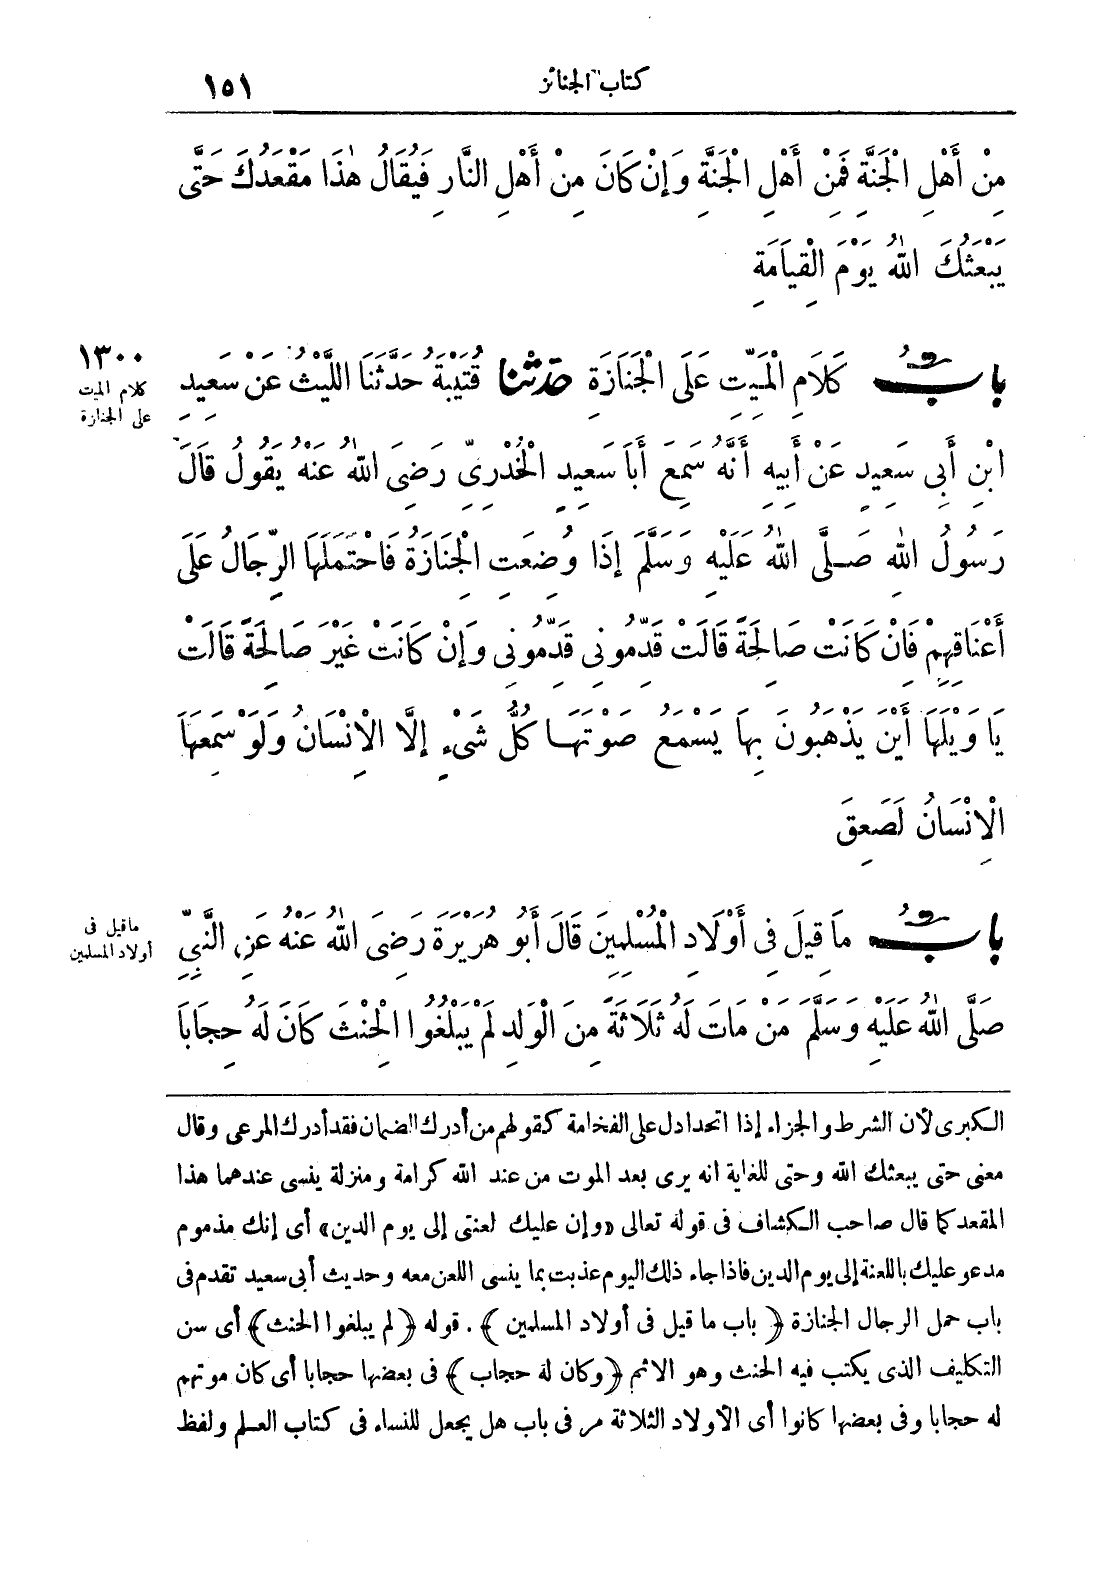 كتاب الجنائز
١٥١
مِنْ أَهْلِ الْجَنَّةِ فَمِنْ أَهْلِ الْجَنَّةِ وَإِنْ كَانَ مِنْ أَهْلِ النَّارِ فَيُقَالُ هٰذَا مَقْعَدُكَ حَتَّى
يَبْعَثُكَ اللّٰهُ يَوْمَ الْقِيَامَةِ
بابُ كَلَامِ الْمَيِّتِ عَلَى الْجَنَازَةِ حدثنا قُتَيْبَةُ حَدَّثَنَا اللَّيْثُ عَنْ سَعِيدِ
١٣٠٠
كلام الميت
على الجنازة
ابْنِ أَبِى سَعِيدٍ عَنْ أَبِيهِ أَنَّهُ سَمِعَ أَبَا سَعِيدٍ الْخُدْرِىِّ رَضِىَ اللّٰهُ عَنْهُ يَقُولُ قَالَ
رَسُولُ اللّٰهِ صَلَّى اللّٰهُ عَلَيْهِ وَسَلَّمَ إِذَا وُضِعَتِ الْجِنَازَةُ فَاحْتَمَلَهَا الرِّجَالُ عَلَى
أَعْنَاقِهِمْ فَانْ كَانَتْ صَالِحَةً قَالَتْ قَدِّمُونِى قَدِّمُونِى وَإِنْ كَانَتْ غَيْرَ صَالِحَةٍ قَالَتْ
يَا وَيْلَهَا أَيْنَ يَذْهَبُونَ بِهَا يَسْمَعُ صَوْتَهَا كُلُّ شَىْءٍ إِلَّا الْإِنْسَانُ وَلَوْ سَمِعَهَا
الْإِنْسَانُ لَصَعِقَ
بابُ مَا قِيلَ فِى أَوْلَادِ الْمُسْلِمِينَ قَالَ أَبُو هُرَيْرَةَ رَضِىَ اللّٰهُ عَنْهُ عَنِ النَّبِىِّ
ما قيل فى
أولاد المسلمين
صَلَّى اللّٰهُ عَلَيْهِ وَسَلَّمَ مَنْ مَاتَ لَهُ ثَلَاثَةٌ مِنَ الْوَلَدِ لَمْ يَبْلُغُوا الْحِنْثَ كَانَ لَهُ حِجَابًا
الكبرى لأن الشرط والجزاء إذا اتحدا دل على الفخامة كقولهم من أدرك الضمان فقد أدرك المرعى وقال
معنى حتى يبعثك الله وحتى للغاية انه يرى بعد الموت من عند الله كرامة ومنزلة ينسى عندهما هذا
المقعد كما قال صاحب الكشاف فى قوله تعالى «وإن عليك لعنتى إلى يوم الدين» أى إنك مذموم
مدعو عليك باللعنة إلى يوم الدين فاذا جاء ذلك اليوم عذبت بما ينسى اللعن معه وحديث أبى سعيد تقدم فى
باب حمل الرجال الجنازة ﴿باب ما قيل فى أولاد المسلمين﴾ . قوله ﴿لم يبلغوا الحنث﴾ أى سن
التكليف الذى يكتب فيه الحنث وهو الاثم ﴿وكان له حجاب﴾ فى بعضها حجابا أى كان موتهم
له حجابا وفى بعضها كانوا أى الأولاد الثلاثة مر فى باب هل يجعل للنساء فى كتاب العلم ولفظ